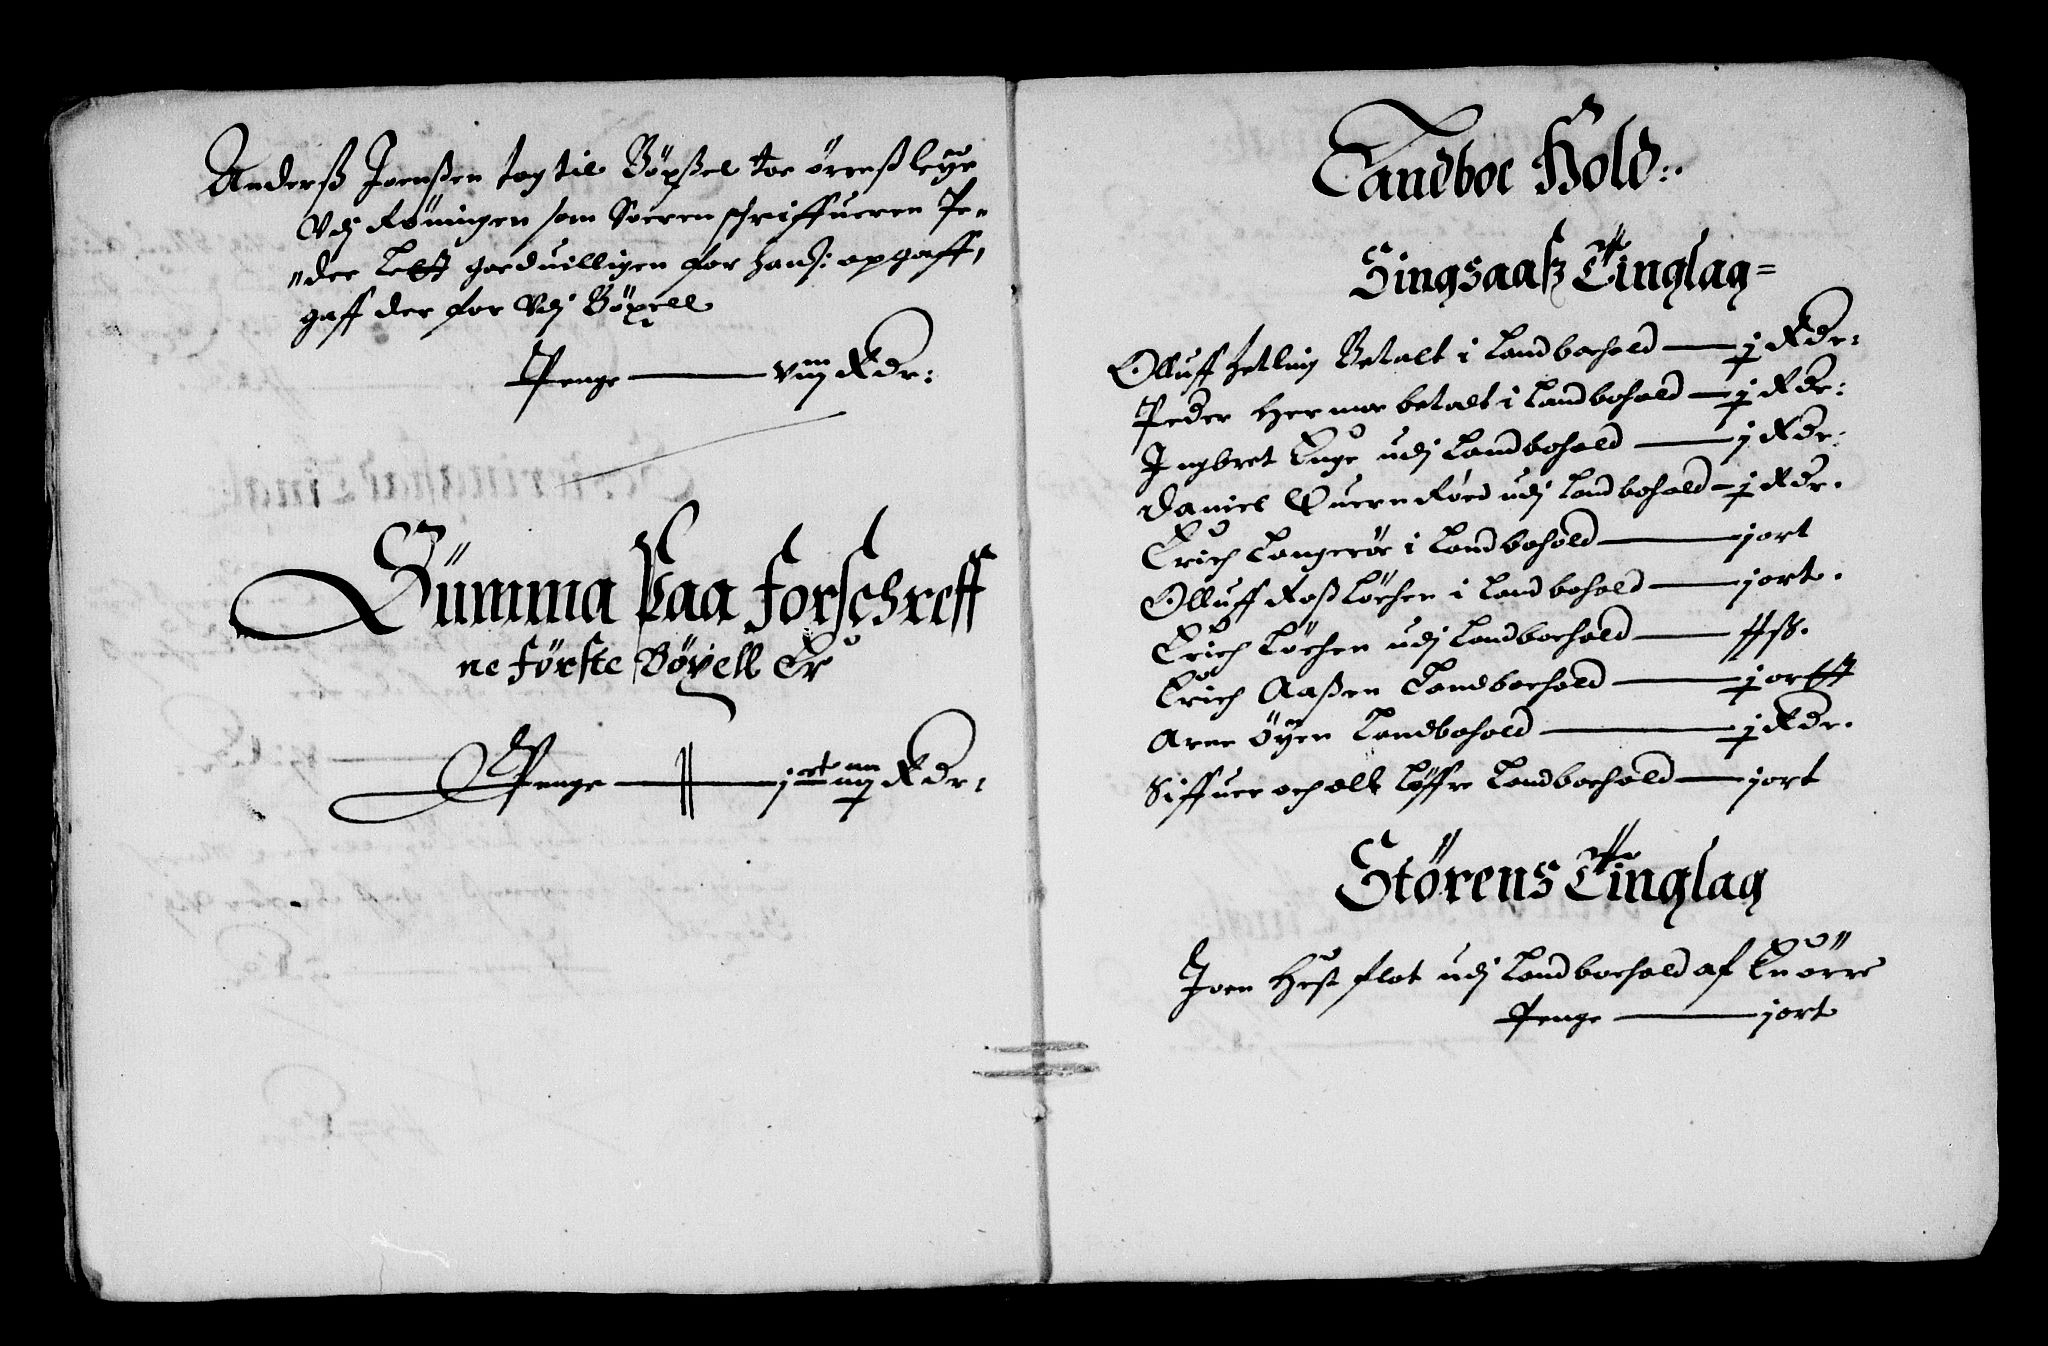 Anderß Joenßen tog til Böxßel toe örreß leye
Vdj Röningen som Soeren schriffueren Pe-
"der Lafft goeduilligen for hanß: opgaff,
gaff der for Vdj Böxell
Penge — viij Rdr:
Summa Paa forschreff
ne förste Böxell Er
Penge — j ort iiij Rdr:
Landboe Hold:.
Singsaaß Tinglag=
Olluff hetling Betalt i Landboehold — j Rdr:
Peder Hermoe betalt i Landbohold — j Rdr:
Ingbret Enge udj Landbohold — j Rdr:
Daniel Quernröed udj Landbohold — j Rdr.
Erich Langeröe i Landbohold — j ort
Olluff Roßlöchen i Landbohold — j ort.
Erich Löchen udj Landboehold — ß.
Erich Aaßen Landboehold — j ortt
Arne Öyen Landbohold — j Rdr.
Siffuer och oll Løffre Landboehold — j ort
Störens Tinglag
Joen Hest flot udj Landboehold af Enorre
Penge — j ort